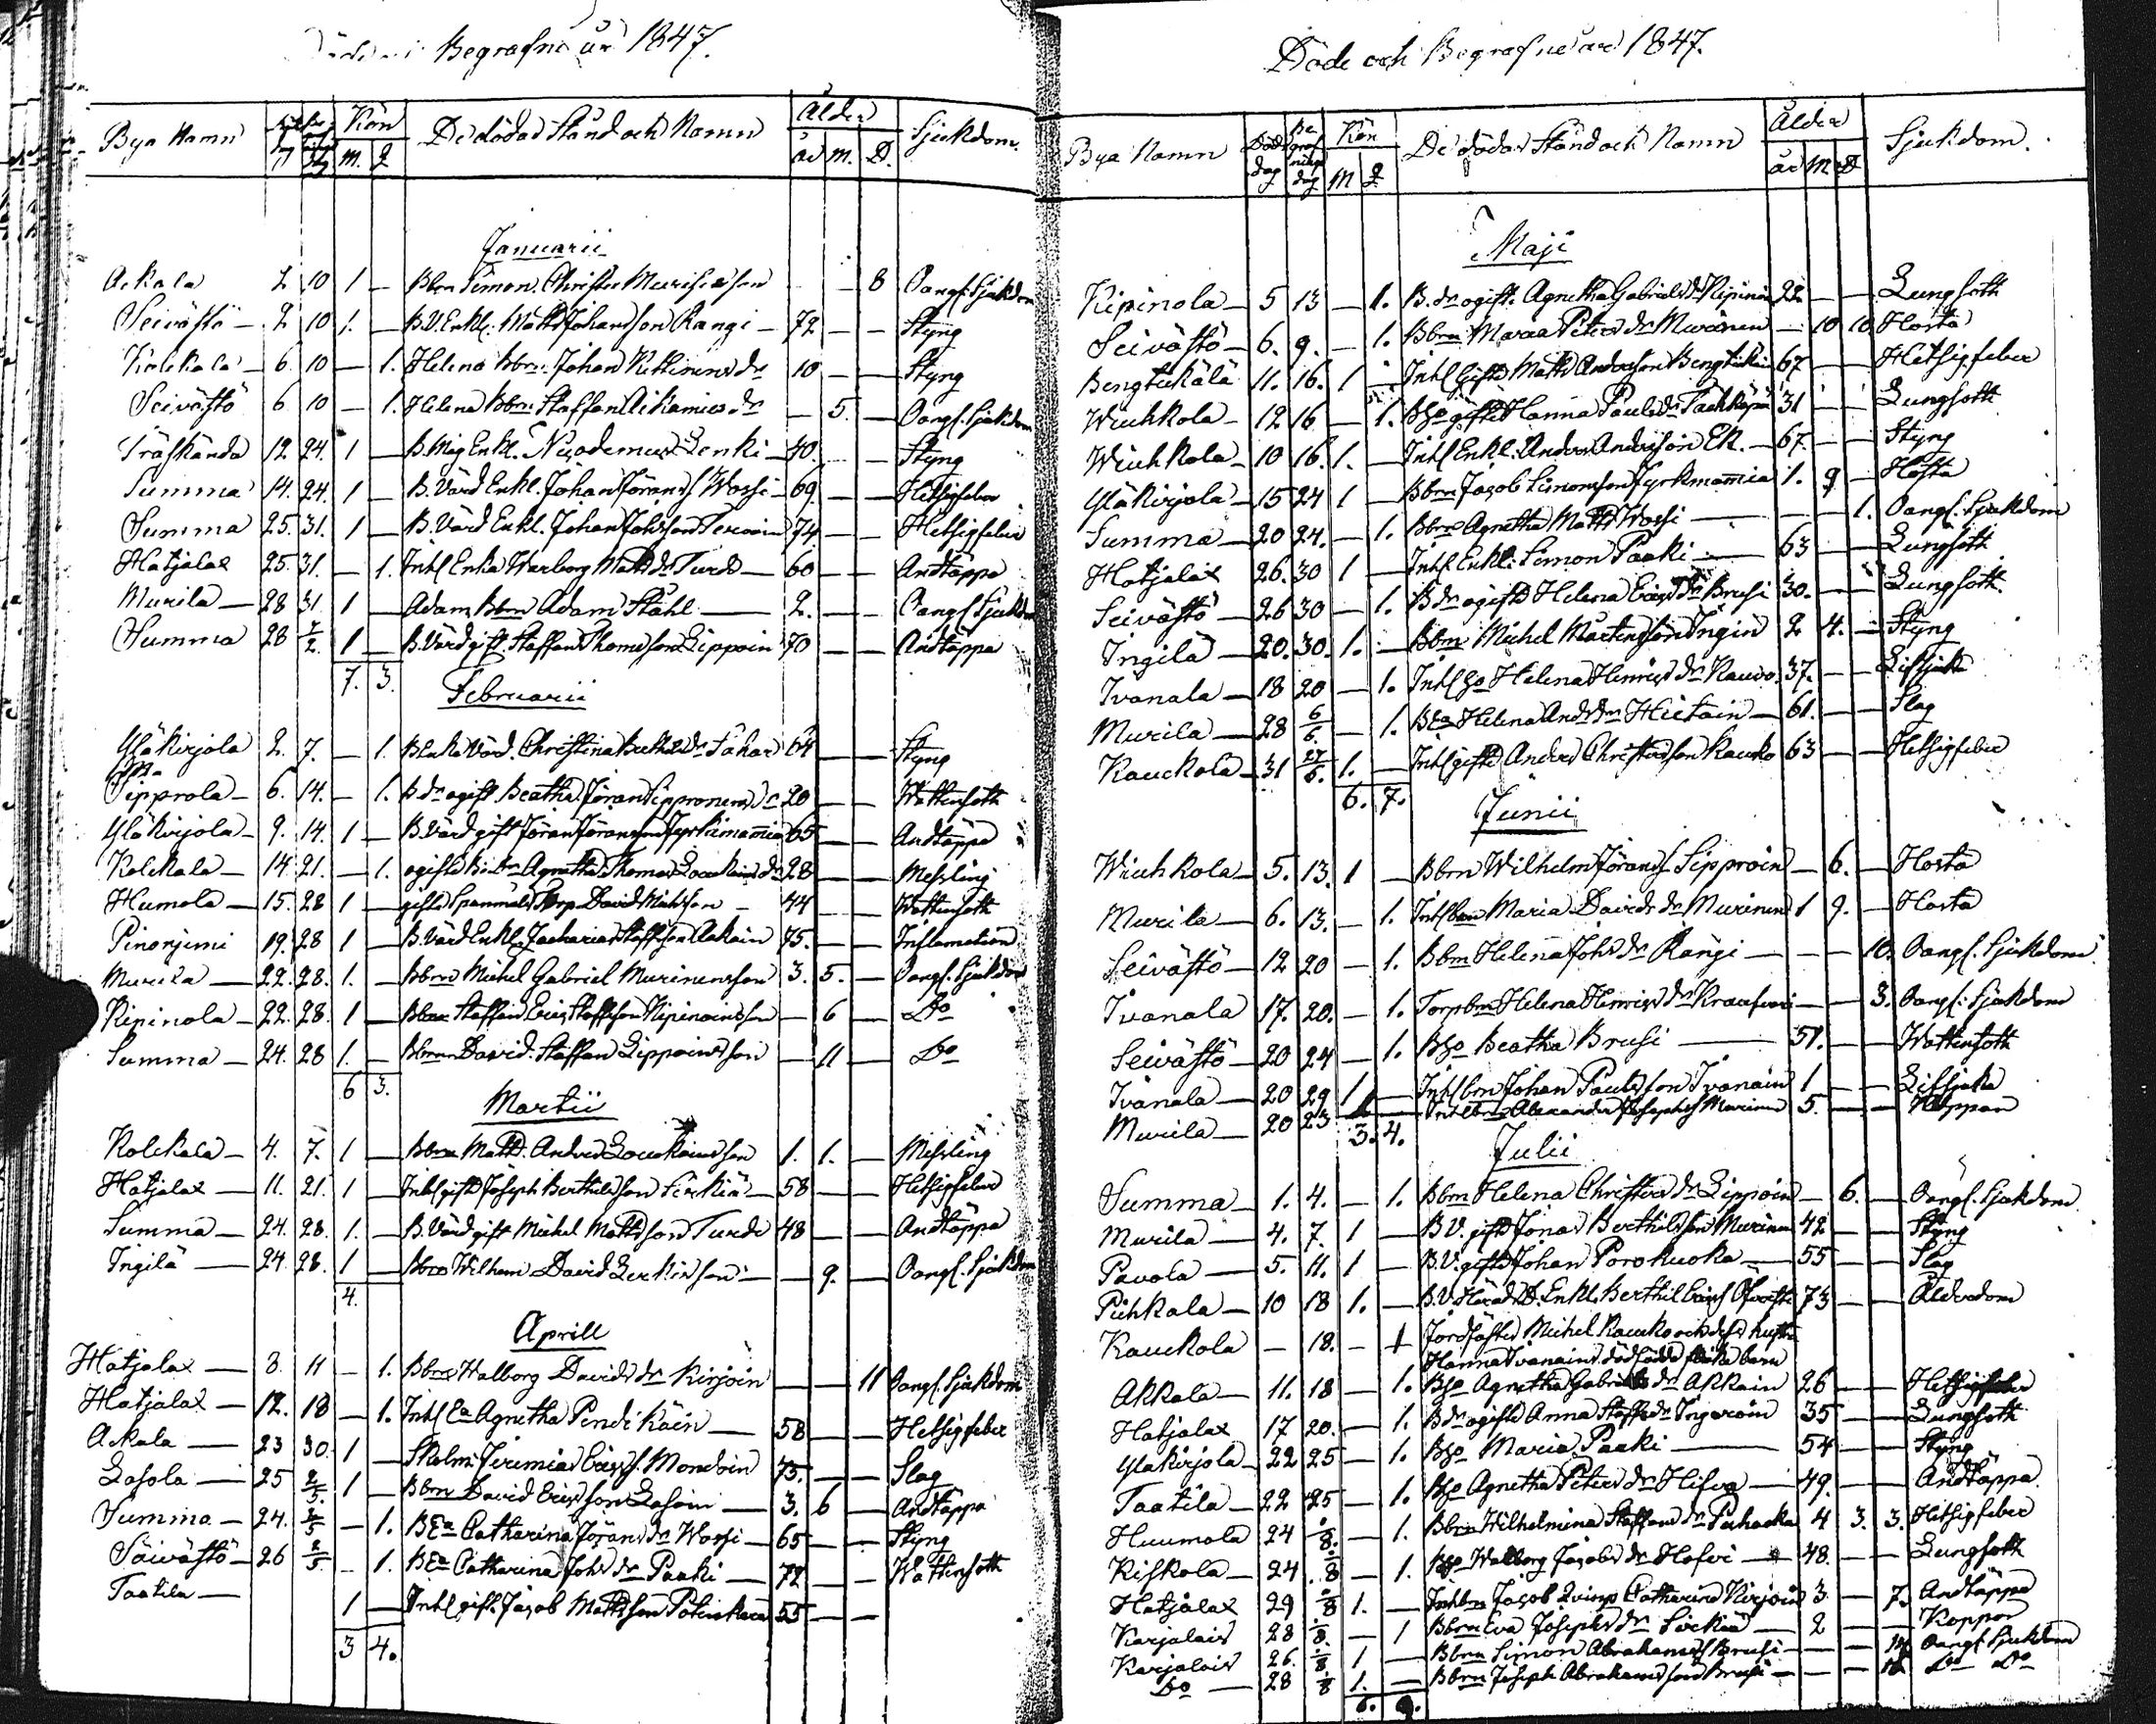 Begrafne år 1847.
Bya Namn Kön De dödas Stånd och Namn Ålder Sjukdom.
M. Q år M. D.
Januarii
Ackala 2 10 1 — Bbrn Simon Christer Murisensson 8 Oangf. Sjukdom
Seivästö — 2 10 1. — B.V. Enkl. Matts Johansson Rangi — 72 — — Styng
6 10 — 1. Helena Bbrn Johan dr 10 — — Styng
Seivästö 6 10 — 1. Helena Bbrn Staffan dr — 5. — Oangf. Sjukdom
Träskända 12 24. 1 — B. Måg Enkl. Lenki — 40. — — Styng
Summa 14. 24. 1 — B. Värd Enkl. Johan Jöranss Wossi — 69 — — Hetsigfeber
Summa 25. 31. 1 — B. Värd Enkl. Johan Johsson 74 — — Hetsigfeber
Hatjalax 25. 31. — 1. Inhl Enka Warborg Matts dr Turde — 60 — — Andtäppa
Murila — 28 31 1 — Adam Bbrn Adam Ståhl — 2. — — Oangf. Sjukdom
Summa 28 7/2 1 — B. Värd gift. Staffan Thomasson Lippoin 70 — — Andtäppa
7. 3.
Februarii
Yläkirjola 2. 7. — 1. B Enka Värd. Christina dr 64 — — Styng
Sipprola — 6. 14. — 1. B dr ogift Beatha Jöran Sippronens dr 20 — — Wattensoth
Yläkirjola — 9. 14. 1 — B. Värd gift Jöran Jöransson 65 — — Andtäppa
Kolckala — 14 21. — 1. ogifta Agnetha Thomas Louckains dr 28 — — Messling
Humola — 15. 28 1 — gifte David — 44 — — Wattensoth
Pinonjemi 19. 28 1 — B. Värd Enkl. Zacharias Staffsson 75. — — Inflamation
Murila — 22. 28. 1. — Bbrn Michel Gabriel Murinensson 3. 5. — Oangf. Sjukdom
Kipinola — 22. 28. 1 — Bbrn Staffan Eric Staffsson Kipinoinsson — 6 — Do
Summa — 24. 28 1. — Bbrn David Staffan Lippoinsson — 11 — Do
6 3.
Martii
Kolckala — 4. 7. 1 — Bbrn Matts Anders Louckainsson 1. 1. — Messling
Hatjalax — 11. 21. 1 — Inhl gift Joseph Berthilsson Sirkiä — 58 — — Hetsigfeber
Summa — 24. 28. 1. — B. Värd gift Michel Mattsson Turde 48 — — Andtäppa
Ingilä — 24. 28. 1 — Bbrn Wilhem David — 9. — Oangf. Sjukdom
4.
Aprill
Hatjalax — 8. 11 — 1. Bbrn Walborg Davids dr Kirjoin — — 11 Oangf. Sjukdom
Hatjalax — 12. 18 — 1. Inhl Ea Agnetha Pendikäin — 58 — — Hetsigfeber
Ackala — 23 30. 1 — Skolm. Jeremias Erics. Mondoin 75. — — Slag
Lasola — 25 2/5. 1 — Bbrn David Ericsson Lasoin — 3. 6 — Andtäppa
Summa — 24. 2/5 — 1. B Ea Catharina Jörans dr Wossi — 65 — — Styng
Säivästö — 26 2/5 — 1. B Ea Catharina Johs dr Paaki — 72 — — Wattensoth
Taatila — 1 — Inhl gift Jacob Mattsson 55 — —
3 4.
Döde och Begrafne år 1847.
Bya Namn Död dag Begrafnings dag Kön De dödas Stånd och Namn Ålder Sjukdom.
M Q år M D
Maji
Kipinola — 5 13 — 1. B. dr ogift. Agnetha Gabriels dr 22 — — Lungsoth
Seivästö — 6. 9. — 1. Bbrn Maria Peters dr Murinen — 10 10 Hosta
Bengtikälä 11. 16. 1 — Inhl Gifte Matts Andersson 67 — — Hetsigfeber
Wiuhkola — 12 16 — 1. Bho gifte Hanna Pauls dr 31 — — Lungsoth
Wiuhkola — 10 16. 1. — Inhl Enkl. Anders Andersson Ek. — 67. — — Styng
Yläkirjola — 15 24 1 — Bbrn Jacob Simonsson 1. 9 — Hosta
Summa — 20 24. — 1. Bbrn Agnetha Matts Wossi — — — 1. Oangf. Sjukdom
Hatjalax — 26. 30 1 — Inhl Enkl. Simon Paaki — 63 — — Lungsoth
Seivästö — 26 30 — 1. B dr ogift Helena Erics dr Brusi 30. — — Lungsoth
Ingilä — 20. 30. 1. — Bbrn Michel Mårtensson Ingin 2 4. — Styng
Ivanala — 18 20 — 1. Inhl ho Helena Henrics dr 37. — — Lifsjuka
Murila — 28 6/6. — 1. B Ea Helena Ands dr Hietain — 61. — — Slag
Kauckola — 31 27/6. 1. — Inhl gifte Anders Christersson Kaucko 63 — — Hetsigfeber
6. 7.
Junii
Wiuhkola — 5. 13. 1 — Bbrn Wilhelm Jöranss Sipproin — 6. — Hosta
Murila — 6. 13. — 1. Inhl barn Maria Davids dr Murinen 1 9. — Hosta
Seivästö — 12 20 — 1. Bbrn Helena Johs dr Rangi — — — 10. Oangf. Sjukdom
Ivanala — 17. 20. — 1. Torp brn Helena Henrics dr — — 3. Oangf. Sjukdom
Seivästö — 20 24 — 1. Bho Beatha Brusi — 51. — — Wattensoth
Ivanala — 20 29 1 — Inhl brn Johan Paulsson Ivanain 1 — — Lifsjuka
Murila — 20 23 1 — Inhl brn Alexander Josephs Murinen 5. — — Koppor
3. 4.
Julii
Summa — 1. 4. — 1. Bbrn Helena Christers dr Lippoin — 6. — Oangf. Sjukdom
Murila — 4. 7. 1 — B V. gifte Jonas Berthilsson Murinen 42 — — Styng
Pavola — 5. 11. 1 — B.V. gifte Johan Porokuoka — 55 — — Slag
Pihkala — 10 18 1. — B.V. Enkl. Berthil Erics 73 — — Ålderdom
Kauckola — 18. — 1 Jordfästes Michel Kaucko och dess hustru
Hanna Ivanains dödfödde flicka barn
Akkala — 11. 18 — 1. Bho Agnetha Gabriels dr Akkain 26 — — Hetsigfeber
Hatjalax 17 20. — 1. B dr ogifte Anna Staffs dr Ingeroin 35 — — Lungsoth
Yläkirjola — 22 25 — 1. Bho Maria Paaki — 54 — — Styng
Taatila — 22 25 — 1. Bho Agnetha Peters dr Hifva — 49. — — Andtäppa
Huumola 24 /8. — 1. Bbrn Wilhelmina Staffans dr 4 3. 3. Hetsigfeber
Kiskola — 24 /8 — 1. Bho Walborg Jacobs dr Hofvi — 48. — — Lungsoth
Hatjalax 29 /8 1. — Inhl brn Jacob Catharina Kirjoin 3 — 7. Andtäppa
Karjalais 28 /8 — 1 Bbrn Eva Josephs dr Sirkiä — 2 — — Koppor
Karjalais 26. /8 1 — Bbrn Simon Abrahamss Brusi — — — Oangf. Sjukdom
Do — 28 /8 1. — Bbrn Joseph Abrahamsson Brusi — — — Do Do
6. 9.